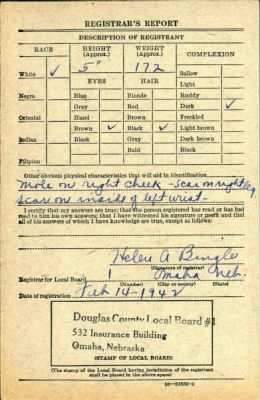 REGISTRAR'S REPORT
DESCRIPTION OF REGISTRANT
RACE HEIGHT (Approx.) WEIGHT (Approx.) COMPLEXION
White ✓ 5" 172 Sallow
EYES HAIR Light
Negro Blue Blonde Ruddy
Gray Red Dark ✓
Oriental Hazel Brown Freckled
Brown ✓ Black ✓ Light brown
Indian Black Gray Dark brown
Bald Black
Filipino
Other obvious physical characteristics that will aid in identification
mole on right cheek - scar on right leg
scar on inside of left wrist.
I certify that my answers are true; that the person registered has read or has had
read to him his own answers; that I have witnessed his signature or mark and that
all of his answers of which I have knowledge are true, except as follows:
Helen A Bingle
(Signature of registrar)
Registrar for Local Board 1 Omaha Neb.
(Number) (City or county) (State)
Date of registration Feb 14-1942
Douglas County Local Board #1
532 Insurance Building
Omaha, Nebraska
(STAMP OF LOCAL BOARD)
(The stamp of the Local Board having jurisdiction of the registrant
shall be placed in the above space)